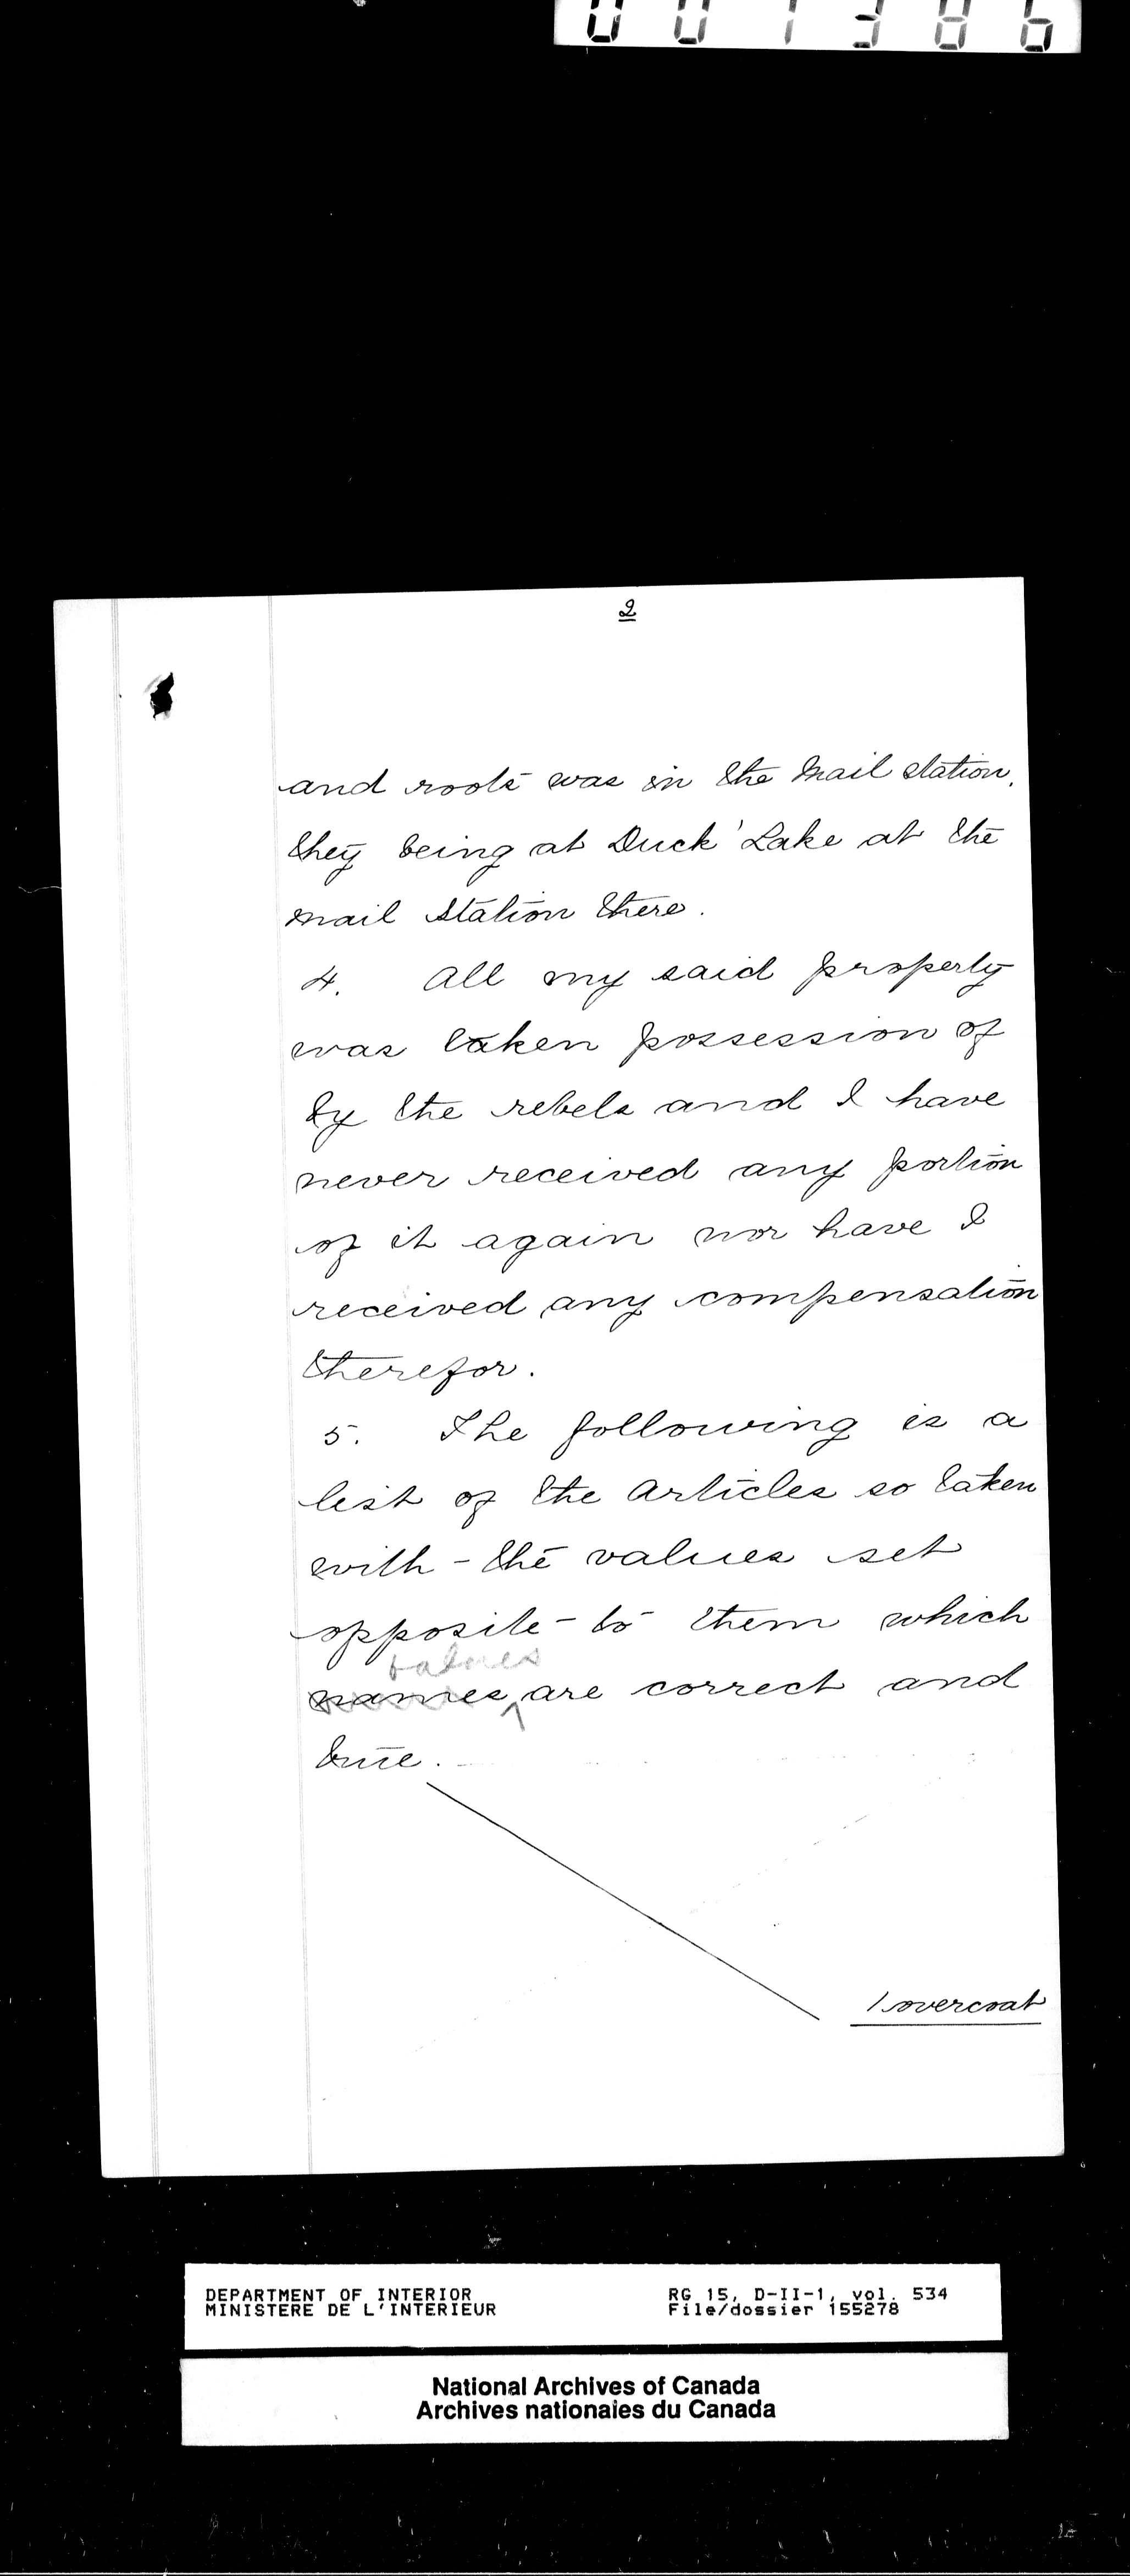 001386
2
and roots was in the Mail station,
they being at Duck Lake at the
mail station there.
4. All my said property
was taken possession of
by the rebels and I have
never received any portion
of it again nor have I
received any compensation
therefor.
5. The following is a
list of the articles so taken
with the values set
opposite to them which
values
names are correct and
true.
1 overcoat
DEPARTMENT OF INTERIOR
MINISTERE DE L'INTERIEUR
RG 15, D-II-1, vol. 534
File/dossier 155278
National Archives of Canada
Archives nationales du Canada